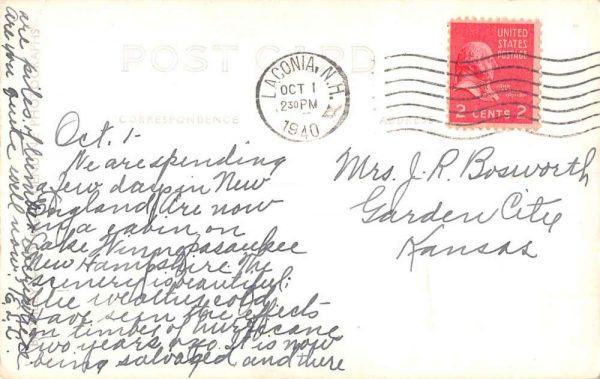 POST CARD
CORRESPONDENCE
ADDRESS
LACONIA, N.H.
OCT 1
2 30 PM
1940
UNITED
STATES
POSTAGE
2 CENTS 2
Mrs. J. R. Bosworth
Garden City
Kansas
Oct. 1-
We are spending
a few days in New
England. Are now
in a cabin on
Lake Winnepasaukee
New Hampshire. The
scenery is beautiful;
the weather cold.
Have seen the effects
on timber of hurricane
two years ago. It is now
being salvaged and there
are piles of lumber everywhere
Are you quite well now.